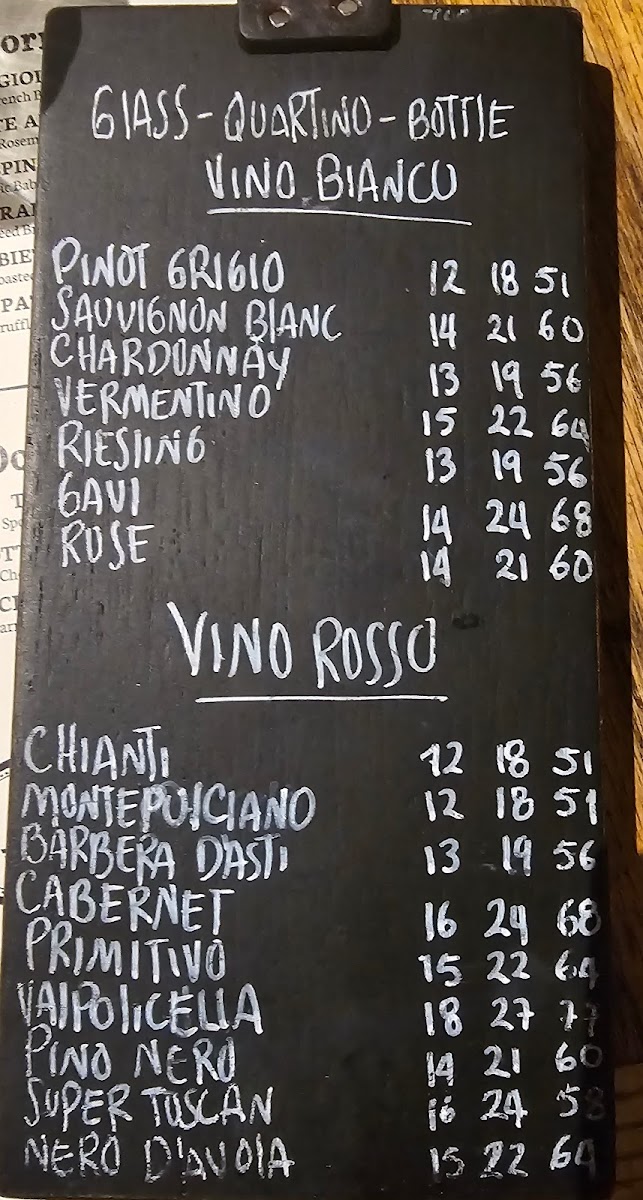 GLASS - QUARTINO - BOTTLE
VINO BIANCO
PINOT GRIGIO 12 18 51
SAUVIGNON BLANC 14 21 60
CHARDONNAY 13 19 56
VERMENTINO 15 22 64
RIESLING 13 19 56
GAVI 14 24 68
ROSE 14 21 60
VINO ROSSO
CHIANTI 12 18 51
MONTEPOLCIANO 12 18 51
BARBERA DASTI 13 19 56
CABERNET 16 24 68
PRIMITIVO 15 22 64
VALPOLICELLA 18 27 77
PINO NERO 14 21 60
SUPER TUSCAN 16 24 58
NERO D'AVOLA 15 22 64